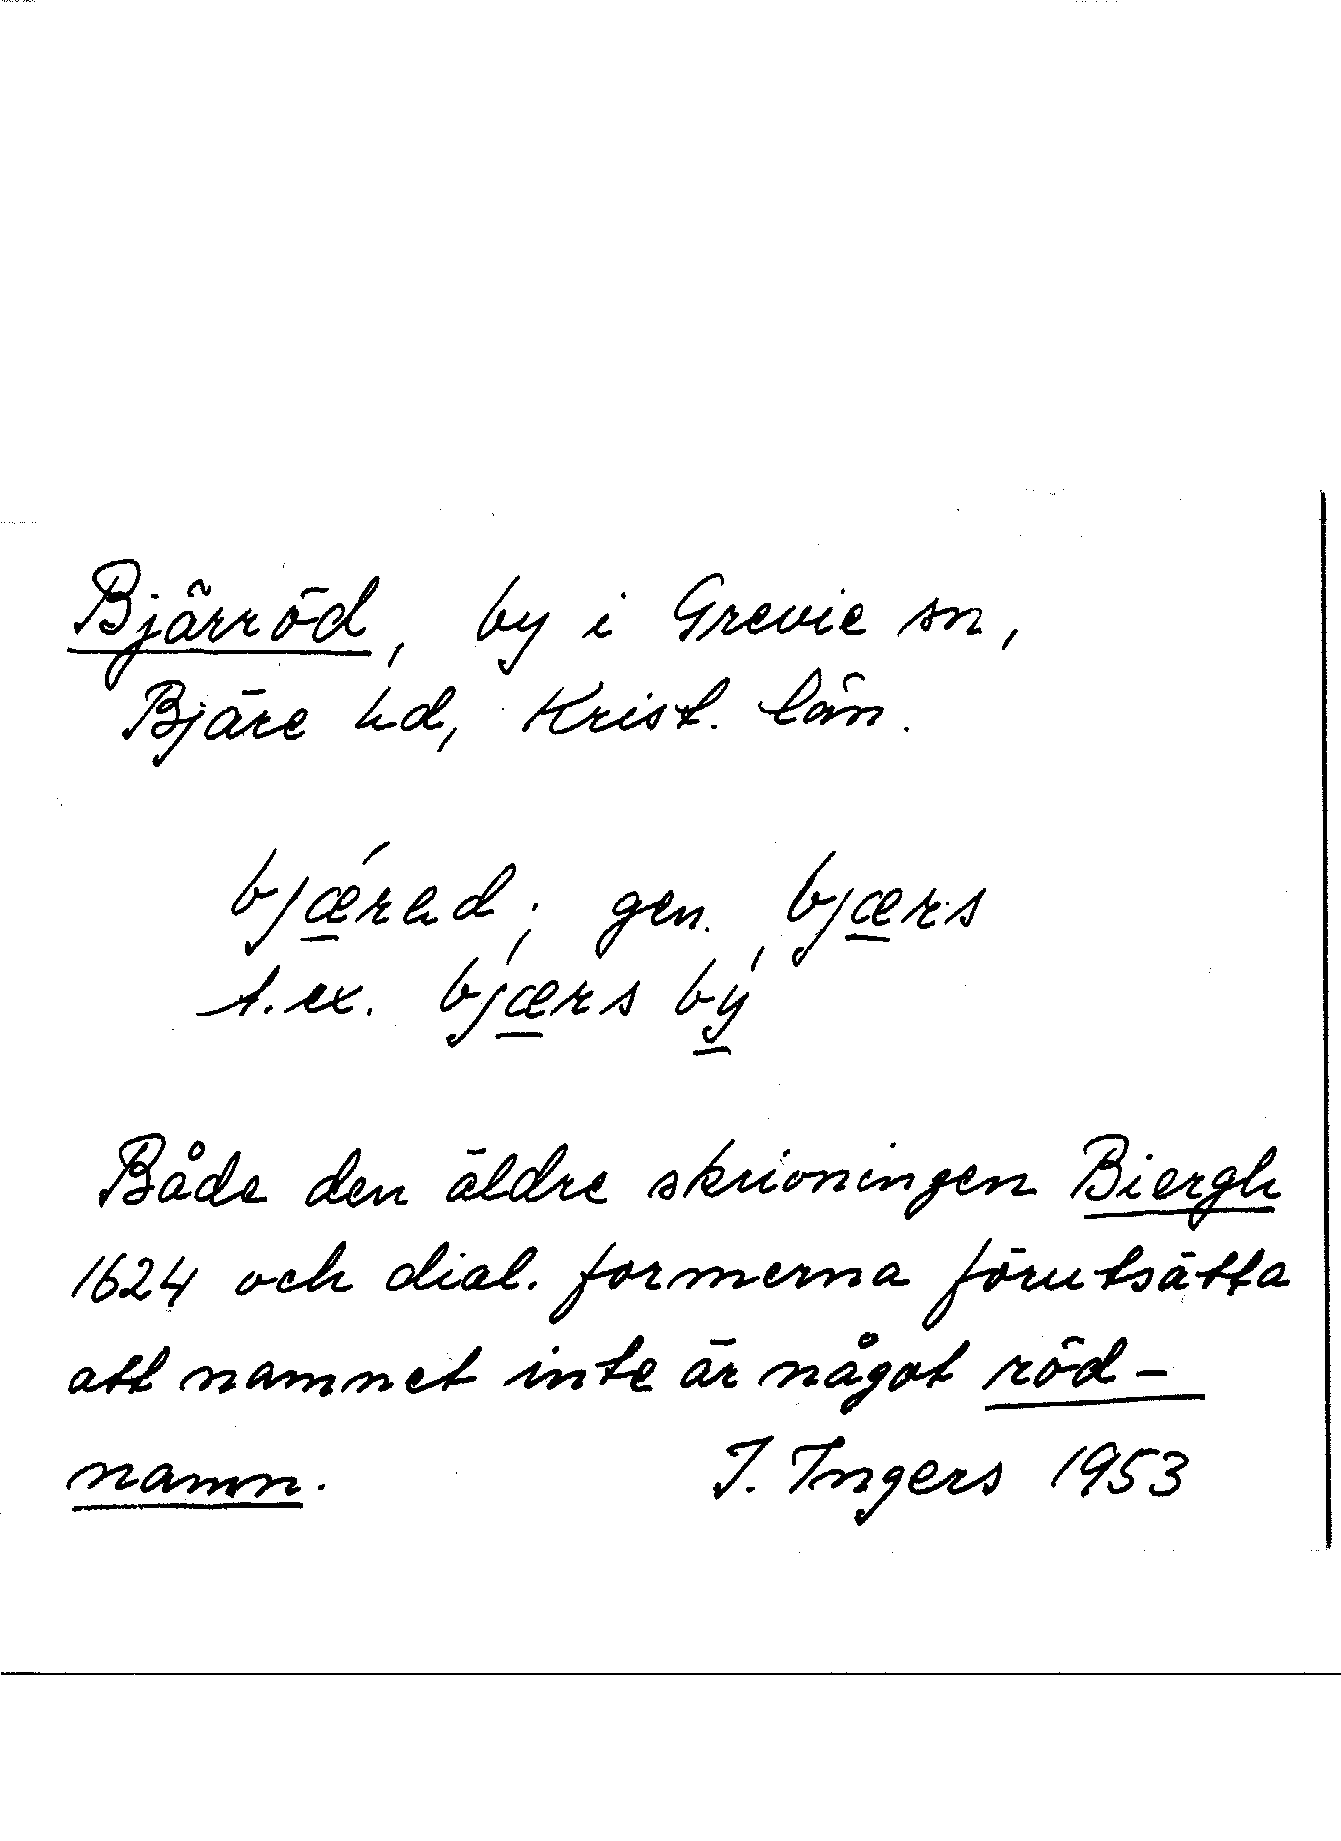 Bjärröd, by i Grevie sn,
Bjäre hd, Krist. län.
bjǽrad; gen. bjærs
t.ex. bjærs bý
Både den äldre skrivningen Biergh
1624 och dial. formerna förutsätta
att namnet inte är något röd-
namn. I. Ingers 1953